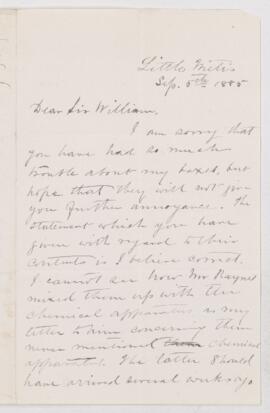 Little Metis
Sep. 5th 1885
Dear Sir William,
I am sorry that
you have had so much
trouble about my boxes, but
hope that they will not give
you further annoyance. The
statement which you have
given with regard to their
contents is I believe correct.
I cannot see how Mr
mixed them up with the
chemical apparatus as my
letter to him concerning them
never mentioned chemical
apparatus. The latter should
have arrived several weeks ago